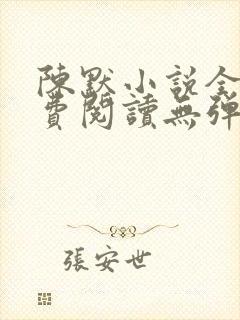 陳默小說全
費閱讀無彈
張安世